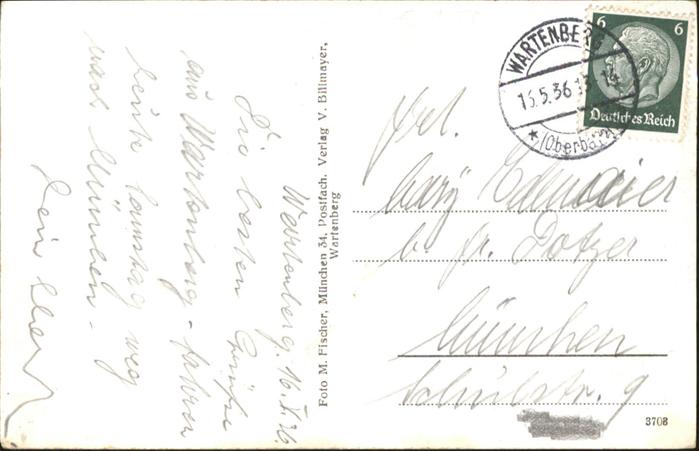 Wartenberg. 16.V.36.
Die besten Grüße
aus Wartenberg - fahren
heute Samstag weg
nach München.
Dein
Foto M. Fischer, München 34, Postfach. Verlag V. Billmayer,
Wartenberg
6 6
Deutsches Reich
WARTENBERG
16.5.36
(Oberbay.)
Frl.
b. Fr. Dotzer
München
Schulstr. 9
3708